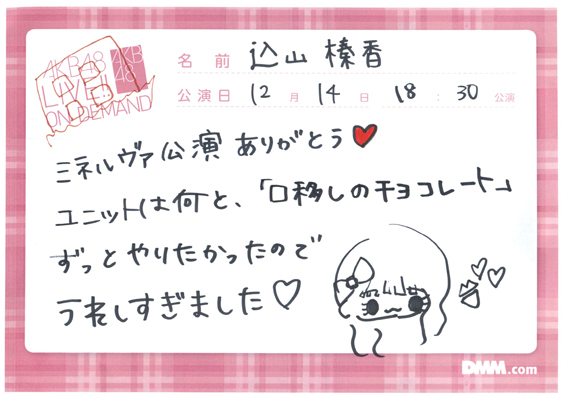 AKB48 AKB48
LIVE!!
ON DEMAND
名前 込山榛香
公演日 12月 14日 18:30公演
ミネルヴァ公演 ありがとう
ユニットは何と、「口移しのチョコレート」
ずっとやりたかったので
うれしすぎました
DMM.com